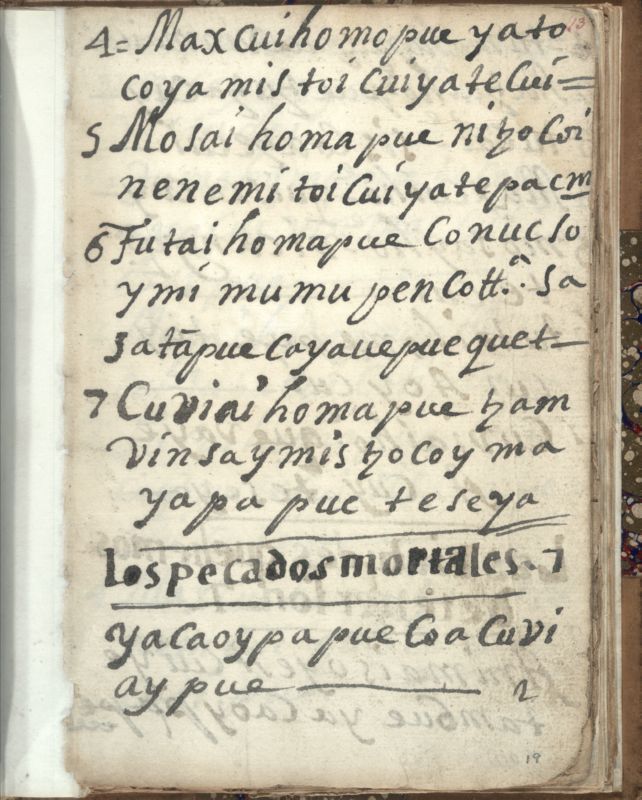 13
4= Maxcuihomopue yato
coya mis toi cuiyatecui=
5 Mosai homa pue ni tzo coi
nenemi toicui yatepacm
6 Futai homapue Conucso
y mi mumu pen cott.ª sa
satāpue cayauepuequet—
7 Cuviai homapue tzam
vin say mis tzocoy ma
yapa pue teseya
los pecados mortales. 7
yacaoypa pue Coa Cuvi
ay pue —— 2
19